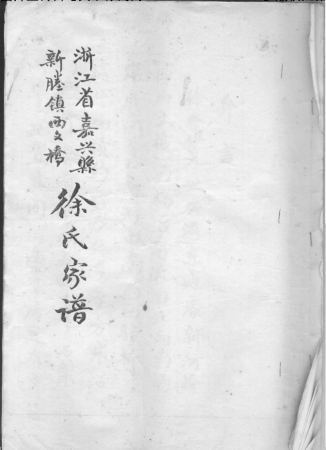 浙江省嘉兴縣
新塍鎮西文橋
徐氏家谱